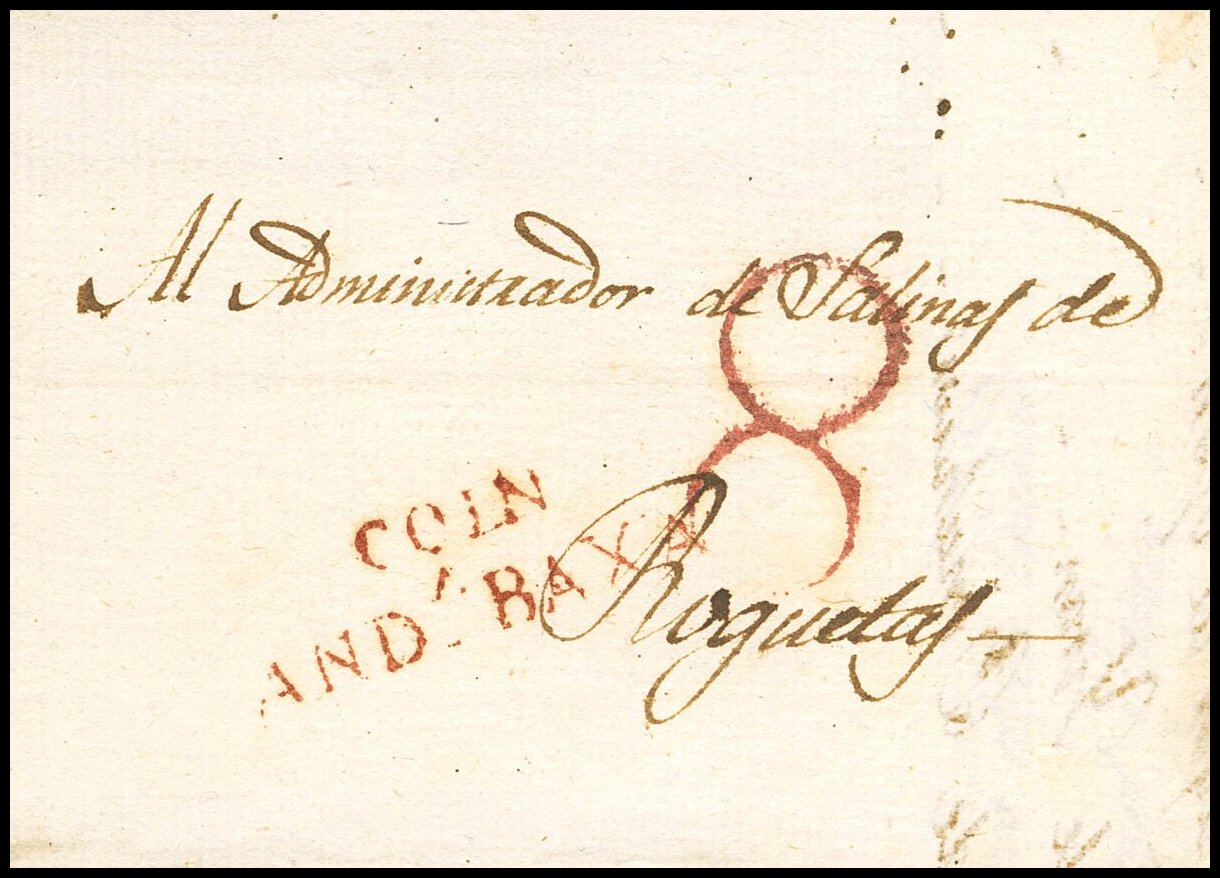 Al Administrador de Salinas de
8
COIN
Roquetas
AND. BAXA